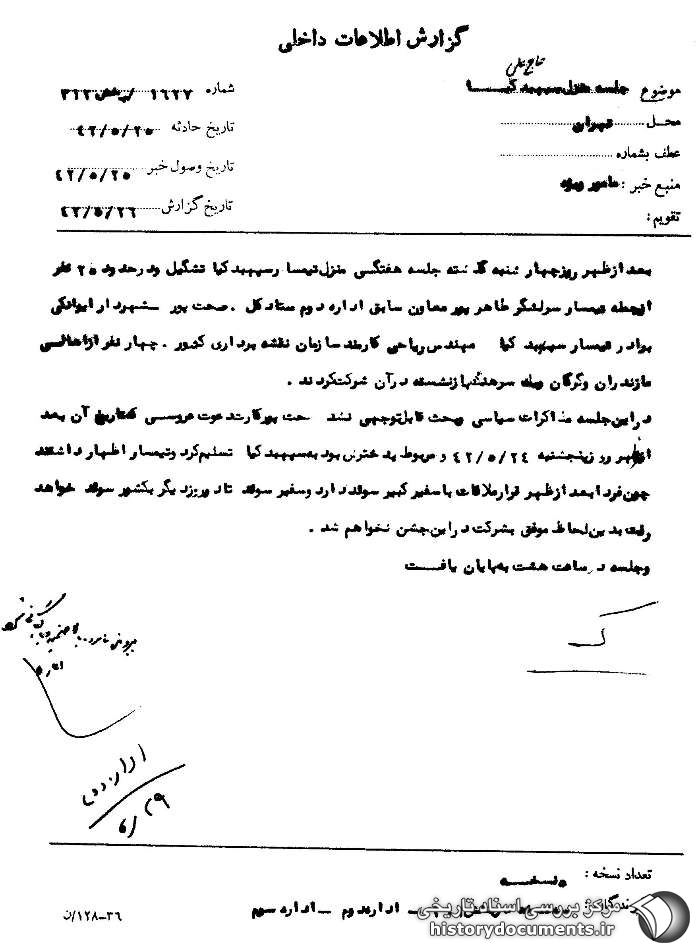 گزارش اطلاعات داخلی
موضوع جلسه منزل سپهبد کیا
شماره ۱۶۲۷ / ۳۲۲
محل تهران
تاریخ حادثه ۴۲/۵/۲۵
عطف بشماره
تاریخ وصول خبر ۴۲/۵/۲۵
منبع خبر : مامور ویژه
تاریخ گزارش ۴۲/۵/۲۶
تقویم :
بعد از ظهر روز چهار شنبه گذشته جلسه هفتگی منزل تیمسا رسپهبد کیا تشکیل و در حدود ۲۵ نفر
ازجمله تیمسار سرلشگر طاهر پور معاون سابق اداره دوم ستاد کل . صحت پور شهردار ایوانکی
برادر تیمسار سپهبد کیا مهندس ریاحی کارمند سازمان نقشه برداری کشور . چهار نفر از اهالی
مازندران و گرگان سرهنگ بازنشسته در آن شرکت کردند .
در این جلسه مذاکرات سیاسی و بحث قابل توجهی نشد صحت پور کارت دعوت عروسی که تاریخ آن بعد
از ظهر روز پنجشنبه ۴۲/۵/۲۴ و مربوط به دخترش بود به سپهبد کیا تسلیم کرد و تیمسار اظهار داشتند
چون فردا بعد از ظهر قرار ملاقات با سفیر کبیر سوئد دارد و سفیر سوئد تا دو روز دیگر بکشور سوئد خواهد
رفت بدین لحاظ موفق بشرکت در این جشن نخواهم شد .
و جلسه در ساعت هشت به پایان یافت
۲۹/۵
تعداد نسخه :
نسخه
اداره دوم – اداره سوم
۳۶-۱۲۸/ن
مرکز بررسی اسناد تاریخی
historydocuments.ir